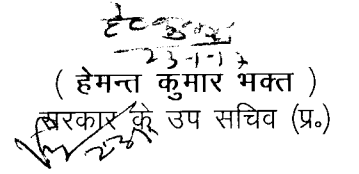 23-1-17
( हेमन्त कुमार भक्त )
सरकार के उप सचिव (प्र०)